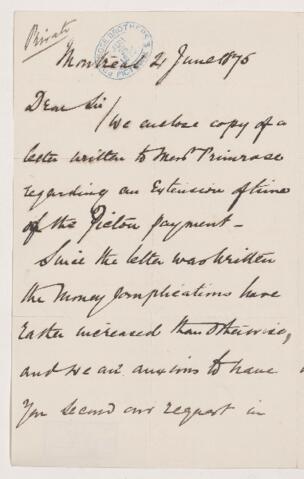 Private
PRIMROSE BROTHERS
PICTOU
Montreal 21 June 1875
Dear Sir/
We enclose copy of a
letter written to Messrs Primrose
regarding an Extension of time
of the Pictou payment -
Since the letter was written
the Money Complications have
Easter increased than otherwise,
and we are anxious to have
you second our request in